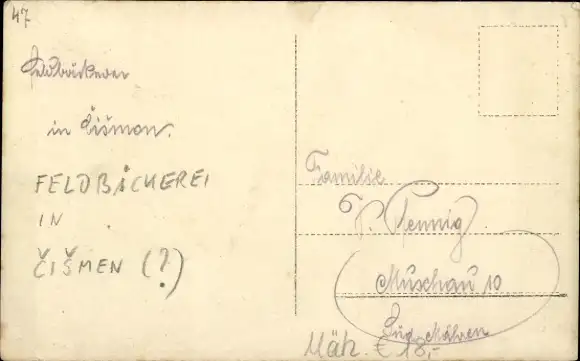 47
Feldbäckerei
in Čišmen.
FELDBÄCKEREI
IN
ČIŠMEN (?)
Familie
Pennig
Muschau 10
Süd-Mähren
Mäh. € 18,-